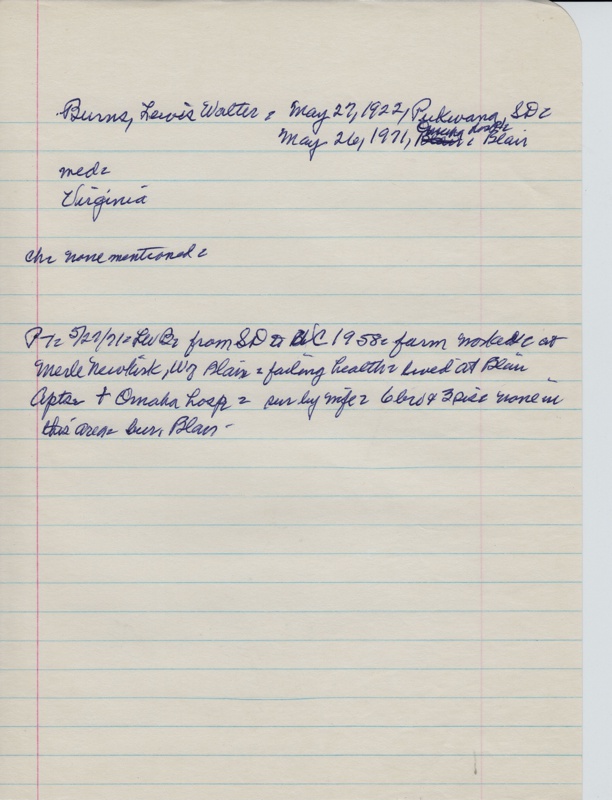 Burns, Lewis Walter = May 27, 1922, Pukwana, SD=
Omaha hosp=
May 26, 1971, Blair = Blair
med=
Virginia
ch= none mentioned=
PT= 5/27/71= LWB= from SD to WC 1958= farm worked= at
Merle Newkirk, W of Blair = failing health= lived at Blair
Apts= + Omaha hosp = sur by wife= 6 bro & 3 sis= none in
this area= bur, Blair-